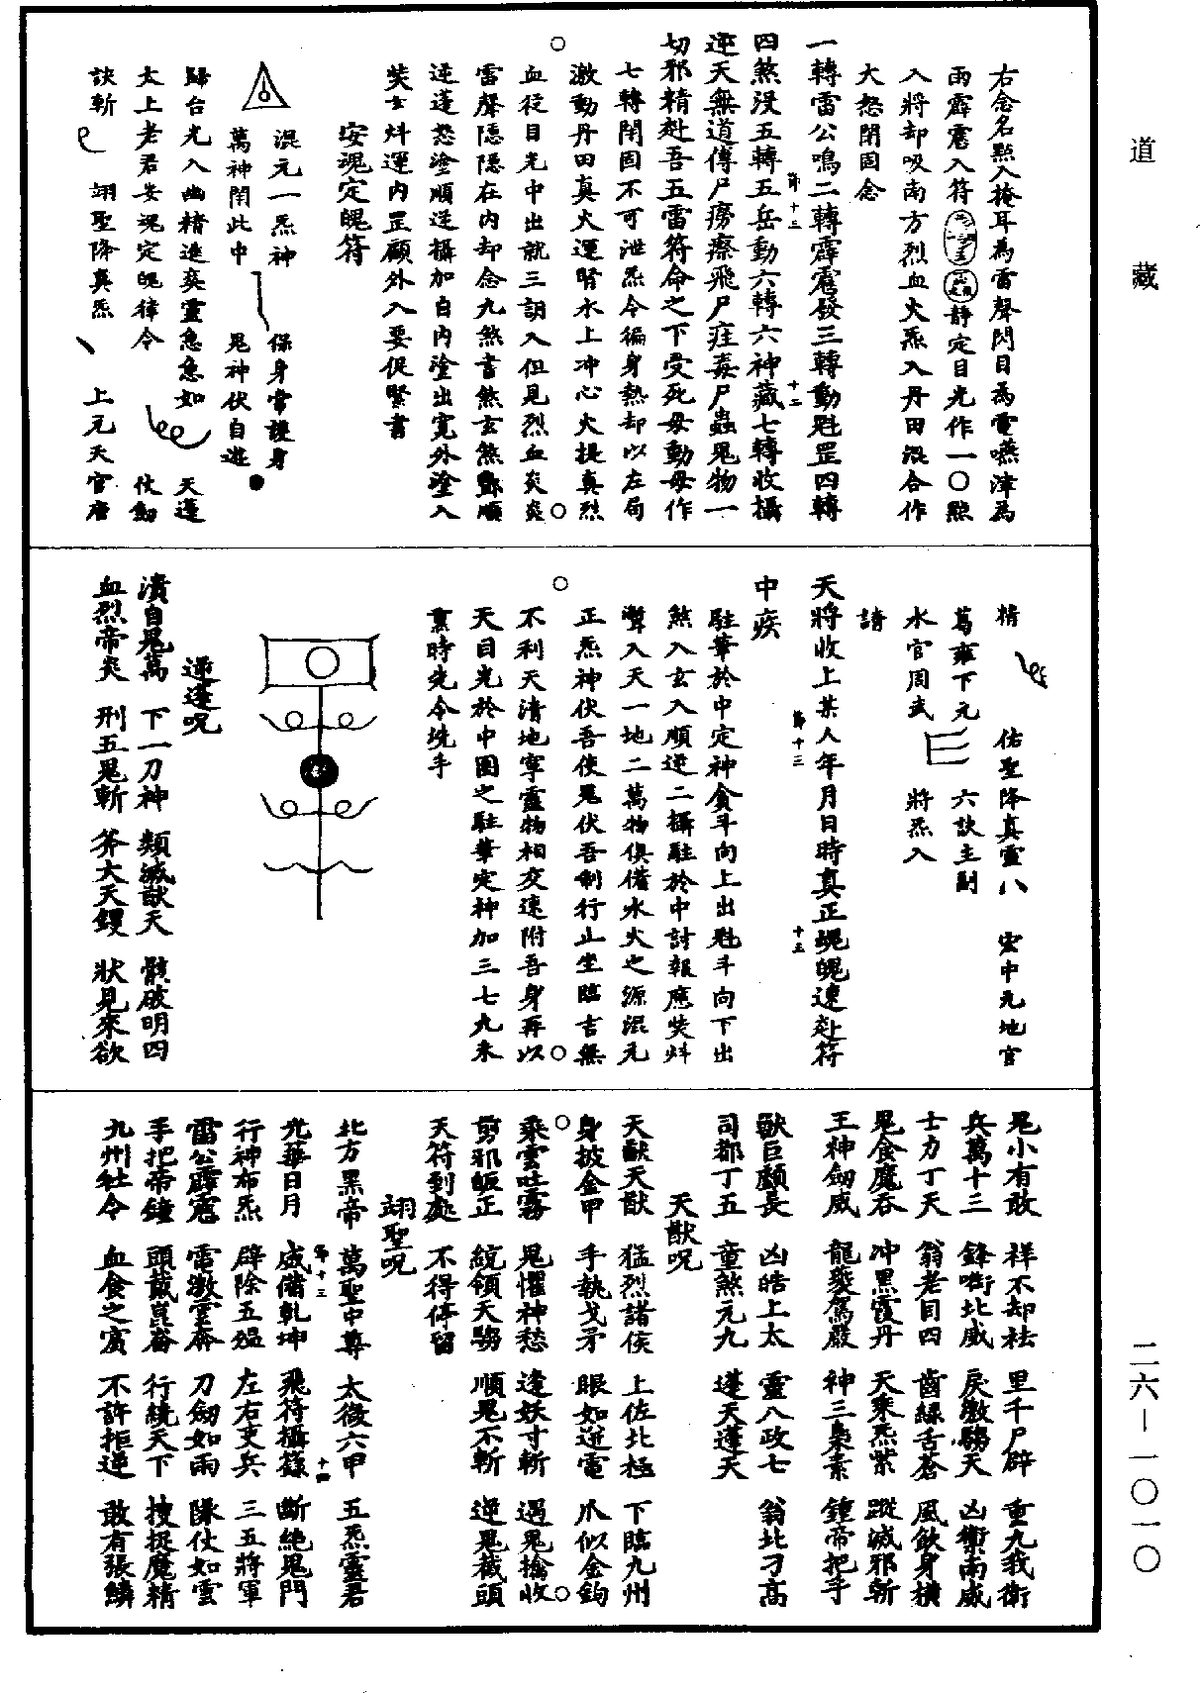 道藏
右念名點入掩耳為雷聲閃目為電嚥津為
雨霹靂入符靜定目光作一〇點
入將却吸南方烈血火炁入丹田混合作
大怒閉固念
一轉雷公鳴二轉霹靂發三轉動魁罡四轉
四煞沒五轉五岳動六轉六神藏七轉收攝
逆天無道傳尸癆瘵飛尸疰毒尸蟲鬼物一
切邪精赴吾五雷符命之下受死毋動毋作
七轉閉固不可泄炁令徧身熱却以左局
激動丹田真火運腎水上冲心火提真烈
血從目光中出就三詔入但見烈血炎炎
雷聲隱隱在內却念九煞書煞玄煞酆順
逆蓬怒塗順逆攝加自內塗出寬外塗入
焋㚢炓運內罡顧外入要促緊書
安魂定魄符
混元一炁神
保身常護身
萬神閉此中
鬼神伏自逃
歸台光入幽精進爽靈急急如
天蓬
太上老君安魂定魄律令
仗劒
訣斬
翊聖降真炁
上元天官唐
精
佑聖降真靈八
宏中元地官
葛雍下元
六訣主副
水官周武
將炁入
請
天將收上某人年月日時真正魂魄速赴符
中疾
駐筆於中定神貪斗向上出魁斗向下出
煞入玄入順逆二攝駐於中討報應焋炓
聻入天一地二萬物俱備水火之源混元
正炁神伏吾使鬼伏吾制行止坐臨吉無
不利天清地寧靈物相交速附吾身再以
天目光於中圈之駐筆定神加三七九未
熏時先令洗手
逆蓬呪
潰自鬼萬 下一刀神 類滅獸天 骸破明四
血烈帝炎 刑五鬼斬 斧大天鍔 狀見來欲
鬼小有敢 祥不却祛 里千尸辟 重九我衛
兵萬十三 鋒啣北威 戾激騶天 凶禦南威
士力丁天 翁老目四 齒綠舌蒼 風飲身橫
鬼食魔吞 冲黑霞丹 天乘炁紫 蹤滅邪斬
王神劒威 龍夔駕嚴 神三梟素 鐘帝把手
獸巨顱長 凶皓上太 靈八政七 翁北刁高
司都丁五 童煞元九 蓬天蓬天
天猷呪
天猷天猷 猛烈諸侯 上佐北極 下臨九州
身披金甲 手執戈矛 眼如迸電 爪似金鈎
乘雲吐霧 鬼懼神愁 逢妖寸斬 遇鬼擒收
剪邪皈正 統領天騶 順鬼不斬 逆鬼截頭
天符到處 不得停留
翊聖呪
北方黑帝 萬聖中尊 太後六甲 五炁靈君
光華日月 威備乾坤 飛符攝籙 斷絕鬼門
行神布炁 辟除五瘟 左右吏兵 三五將軍
雷公霹靂 雷激雲奔 刀劒如雨 隊仗如雲
手把帝鐘 頭戴崑崙 行繞天下 搜捉魔精
九州社令 血食之賓 不許拒逆 敢有張鱗
二六－一〇一〇